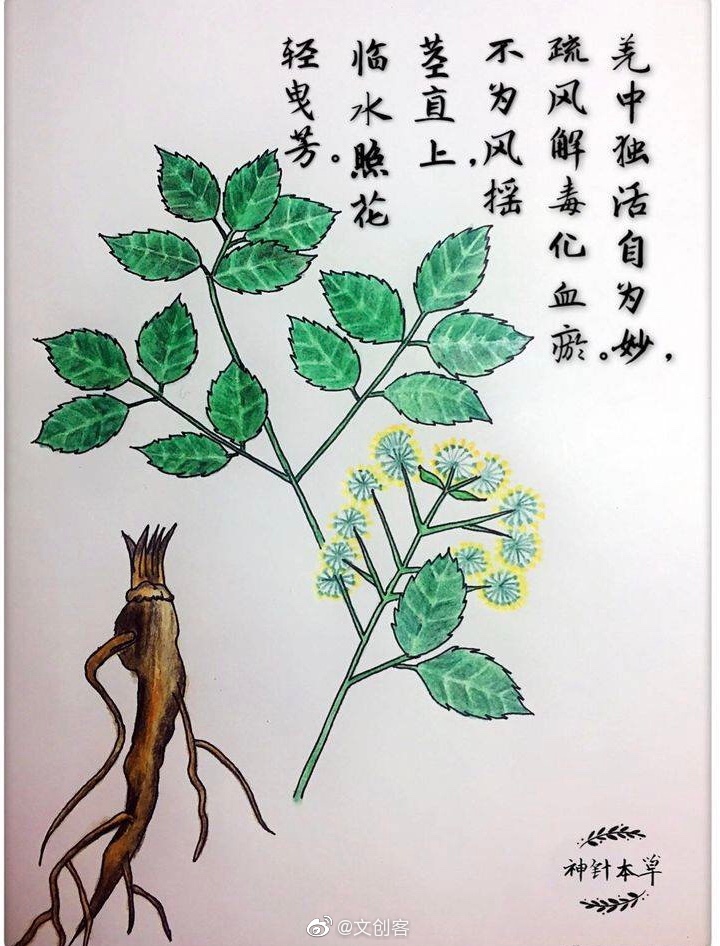 羌中独活自为妙，
疏风解毒化血瘀。
不为风摇
茎直上，
临水照花
轻曳芳。
神针本草
@文创客